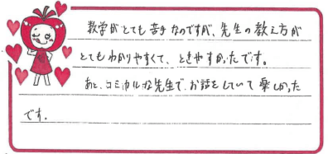 数学がとても苦手なのですが、先生の教え方が
とてもわかりやすくて、ときやすかったです。
あと、コミカルな先生で、お話をしていて楽しかった
です。